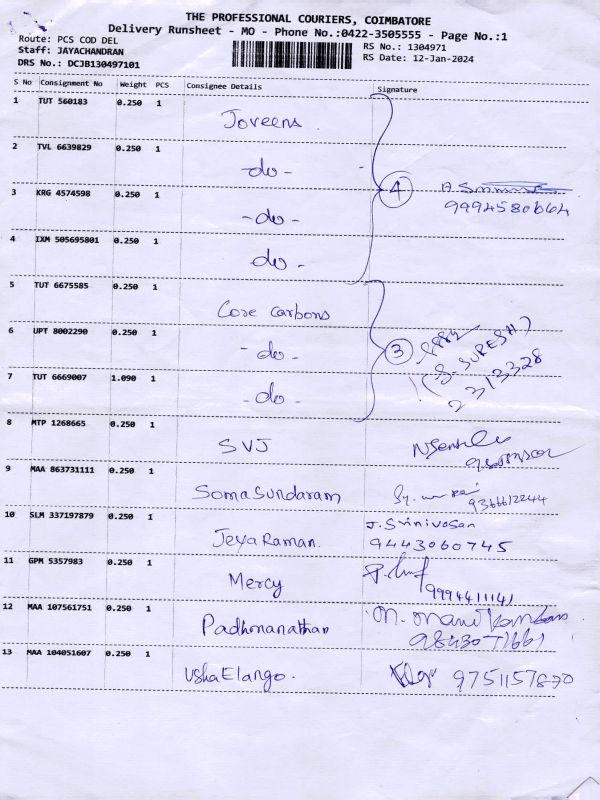 THE PROFESSIONAL COURIERS, COIMBATORE
Delivery Runsheet - MO - Phone No.:0422-3505555 - Page No.:1
Route: PCS COD DEL
Staff: JAYACHANDRAN
DRS No.: DCJB130497101
RS No.: 1304971
RS Date: 12-Jan-2024
S No Consignment No Weight PCS Consignee Details Signature
1 TUT 560183 0.250 1 Joveens
2 TVL 6639829 0.250 1 -do-
3 KRG 4574598 0.250 1 -do-
4 IXM 505695801 0.250 1 do -
4
9994580664
5 TUT 6675585 0.250 1 Core carbons
6 UPT 8002290 0.250 1 - do -
7 TUT 6669007 1.090 1 -do-
3
(S. SURESH)
2313328
8 MTP 1268665 0.250 1 SVJ
9 MAA 863731111 0.250 1 SomaSundaram
9366612244
10 SLM 337197879 0.250 1 JeyaRaman. J. Srinivasan
9443060745
11 GPM 5357983 0.250 1 Mercy
9994411141
12 MAA 107561751 0.250 1 Padhmanathan M. Manikandan
9843071661
13 MAA 104051607 0.250 1 Usha Elango. 9751157870